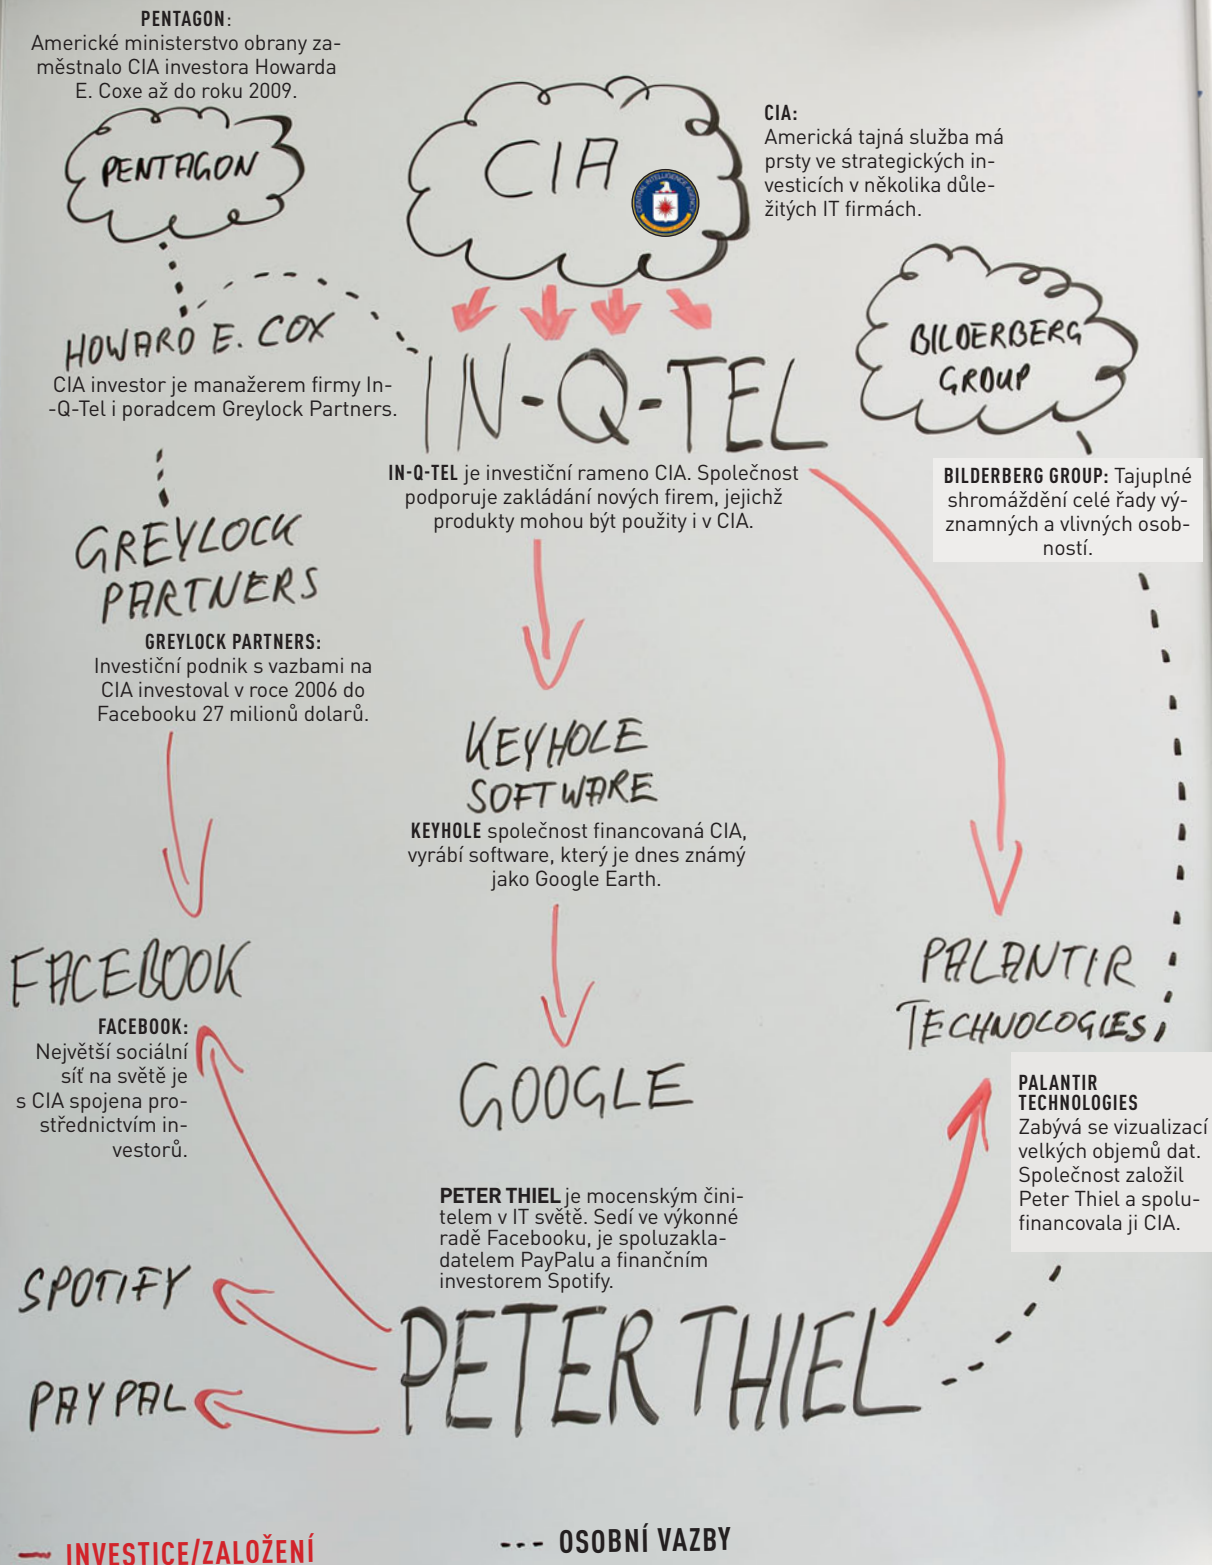 PENTAGON:
Americké ministerstvo obrany za-
městnalo CIA investora Howarda
E. Coxe až do roku 2009.
PENTAGON
CIA
CIA:
Americká tajná služba má
prsty ve strategických in-
vesticích v několika důle-
žitých IT firmách.
HOWARD E. COX
CIA investor je manažerem firmy In-
-Q-Tel i poradcem Greylock Partners.
IN-Q-TEL
IN-Q-TEL je investiční rameno CIA. Společnost
podporuje zakládání nových firem, jejichž
produkty mohou být použity i v CIA.
BILDERBERG
GROUP
BILDERBERG GROUP: Tajuplné
shromáždění celé řady vý-
znamných a vlivných osob-
ností.
GREYLOCK
PARTNERS
GREYLOCK PARTNERS:
Investiční podnik s vazbami na
CIA investoval v roce 2006 do
Facebooku 27 milionů dolarů.
KEYHOLE
SOFTWARE
KEYHOLE společnost financovaná CIA,
vyrábí software, který je dnes známý
jako Google Earth.
FACEBOOK
FACEBOOK:
Největší sociální
síť na světě je
s CIA spojena pro-
střednictvím in-
vestorů.
GOOGLE
PALANTIR
TECHNOLOGIES
PALANTIR
TECHNOLOGIES
Zabývá se vizualizací
velkých objemů dat.
Společnost založil
Peter Thiel a spolu-
financovala ji CIA.
PETER THIEL je mocenským čini-
telem v IT světě. Sedí ve výkonné
radě Facebooku, je spoluzakla-
datelem PayPalu a finančním
investorem Spotify.
SPOTIFY
PAYPAL
PETER THIEL
INVESTICE/ZALOŽENÍ
OSOBNÍ VAZBY